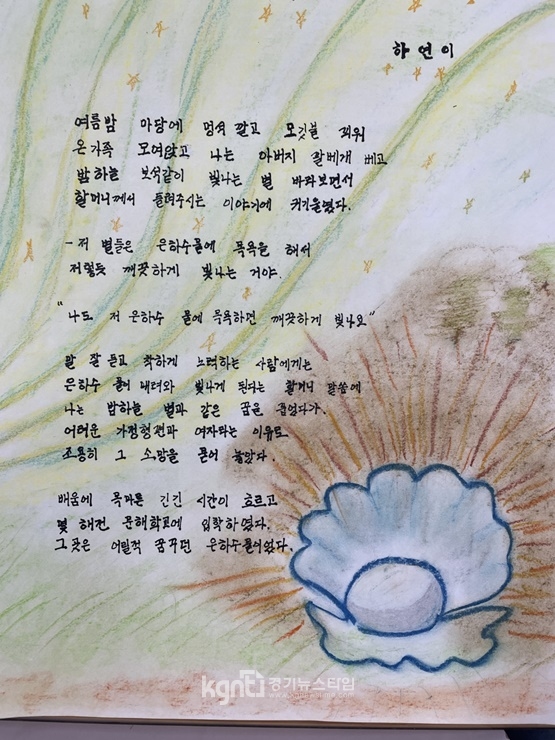 하연이
여름밤 마당에 멍석 깔고 모깃불 피워
온가족 모여앉고 나는 아버지 팔베개 베고
밤하늘 보석같이 빛나는 별 바라보면서
할머니께서 들려주시는 이야기에 귀기울였다.
- 저 별들은 은하수물에 목욕을 해서
저렇듯 깨끗하게 빛나는 거야.
"나도 저 은하수 물에 목욕하면 깨끗하게 빛나요"
말 잘 듣고 착하게 노력하는 사람에게는
은하수 물이 내려와 빛나게 된다는 할머니 말씀에
나는 밤하늘 별과 같은 꿈을 품었다가.
어려운 가정형편과 여자라는 이유로
조용히 그 소망을 묻어 놓았다.
배움에 목마른 긴긴 시간이 흐르고
몇 해전 문해학교에 입학하였다.
그곳은 어릴적 꿈꾸던 은하수물이었다.
kgnti 경기뉴스타임